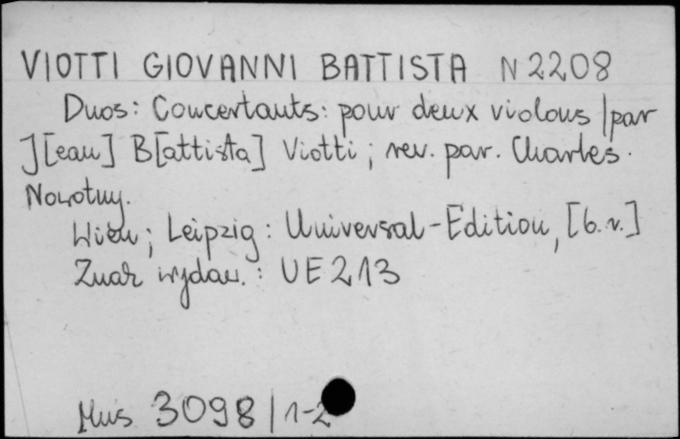 VIOTTI GIOVANNI BATTISTA N 2208
Duos: Concertants: pour deux violons / par
J[ean] B[attista] Viotti; rev. par. Charles.
Nowotny.
Wien; Leipzig: Universal-Edition, [b.r.]
Znak wydaw.: UE 213
Mus 3098 / 1-2